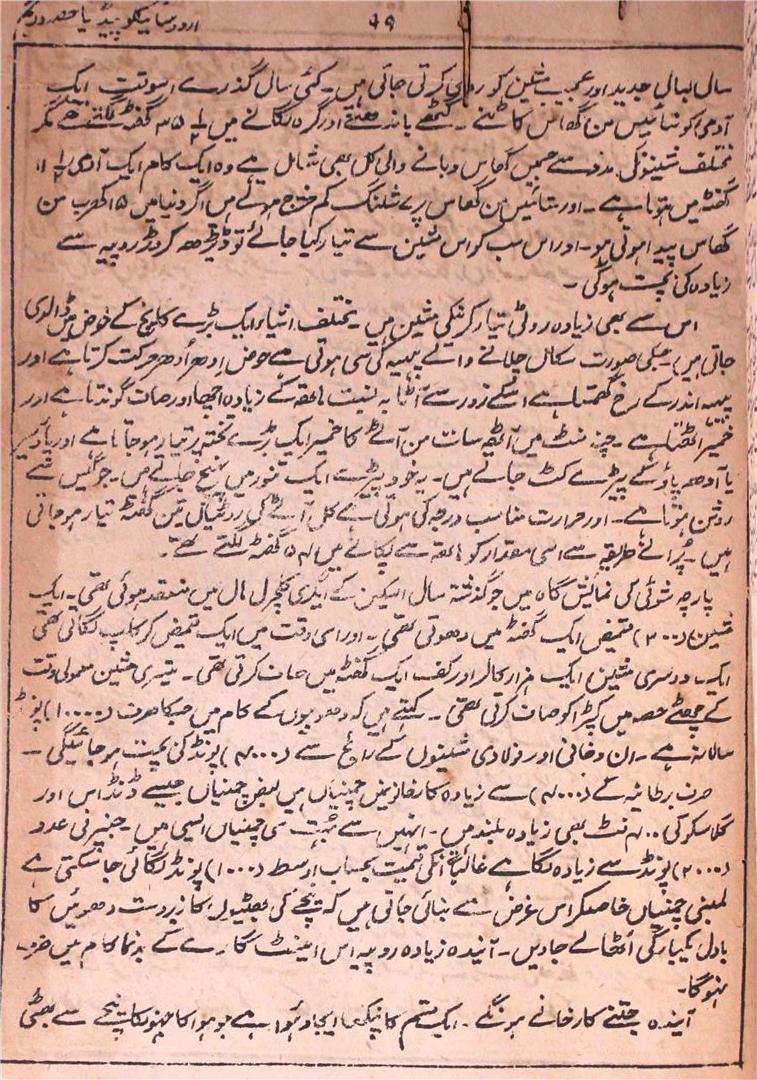 اردو سائیکلوپیڈیا حصہ دیگر
۲۹
سال بسال جدید اور عجیب مشین کو ردی کرتی جاتی ہیں۔ کئی سال گذرے اسوقت ایک
آدمی کو ستائیس من گھاس کاٹنے۔ گٹھے باندھنے اور گرہ لگانے میں ½ ۳۵ گھنٹے لگتے تھے مگر
مختلف مشینونکی مدد سے جسمیں گھاس دبانے والی کل بھی شامل ہے وہ ایک کام ایک آدمی ½ ۱۱
گھنٹہ میں ہوتا ہے۔ اور ستائیس من گھاس پر ۷ شلنگ کم خرچ ہوئے ہیں اگر دنیا میں ۱۵ کھرب من
گھاس پیدا ہوتی ہو۔ اور اس سب کو اس مشین سے تیار کیا جائے تو ڈیڑھ کروڑ روپیہ سے
زیادہ کی بچت ہوگی۔
اس سے بھی زیادہ روٹی تیار کرنیکی مشین ہیں۔ مختلف اشیاء ایک بڑے کانچ کے حوض میں ڈالدی
جاتی ہیں۔ جسکی صورت سکال چلانے والے پہیہ کی سی ہوتی ہے حوض اِدھر اُدھر حرکت کرتا ہے اور
پہیہ اندر کے رخ گھمتا ہے اسکے زور سے آٹا بہ نسبت ہاتھ کے زیادہ اچھا اور صاف گوندتا ہے اور
خمیر اٹھتا ہے۔ چند منٹ میں آٹھ سات من آٹے کا خمیر ایک بڑے تختہ پر تیار ہو جاتا ہے اور پاؤ سیر
یا آدھ پاؤ کے پیڑے کٹ جاتے ہیں۔ یہ خود پیڑے ایک تنور میں پہنچ جاتے ہیں۔ جو گیس سے
روشن ہوتا ہے۔ اور حرارت مناسب درجہ کی ہوتی ہے کل آٹے کی روٹیاں تین گھنٹہ تیار ہو جاتی
ہیں۔ پُرانے طریقہ سے اسی مقدار کو ہاتھ سے پکانے میں ۵۴ گھنٹہ لگتے تھے۔
پارچہ شوئی کی نمائش گاہ میں جو گذشتہ سال اسیکن کے ایگری کلچرل ہال میں منعقد ہوئی تھی۔ ایک
مشین (۲۰۰) قمیض ایک گھنٹہ میں دھوتی تھی۔ اور اسی وقت میں ایک قمیض کو کلپ لگاتی تھی
ایک دوسری مشین ایک ہزار کالر اور کف ایک گھنٹہ میں صاف کرتی تھی۔ تیسری مشین معمولی وقت
کے چھٹے حصہ میں کپڑا کو صاف کرتی تھی۔ کہتے ہیں کہ دھوبیوں کے کام میں جسکا صرف (۱۰۰۰۰) پونڈ
سالانہ ہے۔ ان دخانی اور فولادی مشینوں کے رائج سے (۴۰۰۰) پونڈ کی بچت ہو جائیگی۔
صرف برطانیہ کے (۴۰۰۰) سے زیادہ کارخانونمیں چمنیاں ہیں بعض چمنیاں جیسے ڈنڈاس اور
گلاسکو کی ۴۰۰ فٹ بھی زیادہ بلند ہیں۔ انہیں سے بہت سی چمنیاں ایسی ہیں۔ جنپر فی عدد
(۲۰۰۰) پونڈ سے زیادہ لگا ہے غالباً انکی قیمت بحساب اوسط (۱۰۰۰) پونڈ لگائی جاسکتی ہے
لمبی چمنیاں خاصکر اس غرض سے بنائی جاتی ہیں کہ نیچے کی بھٹیوں کا زبردست دھوئیں کا
بادل یکبارگی اُٹھالے جاویں۔ آیندہ زیادہ روپیہ اس اینٹ گارے کے بدنما کام میں صرف
نہوگا۔
آیندہ جتنے کارخانے ہونگے۔ ایک قسم کا پنکھا ایجاد ہوا ہے جو ہوا کا جھونکا نیچے سے بھٹی